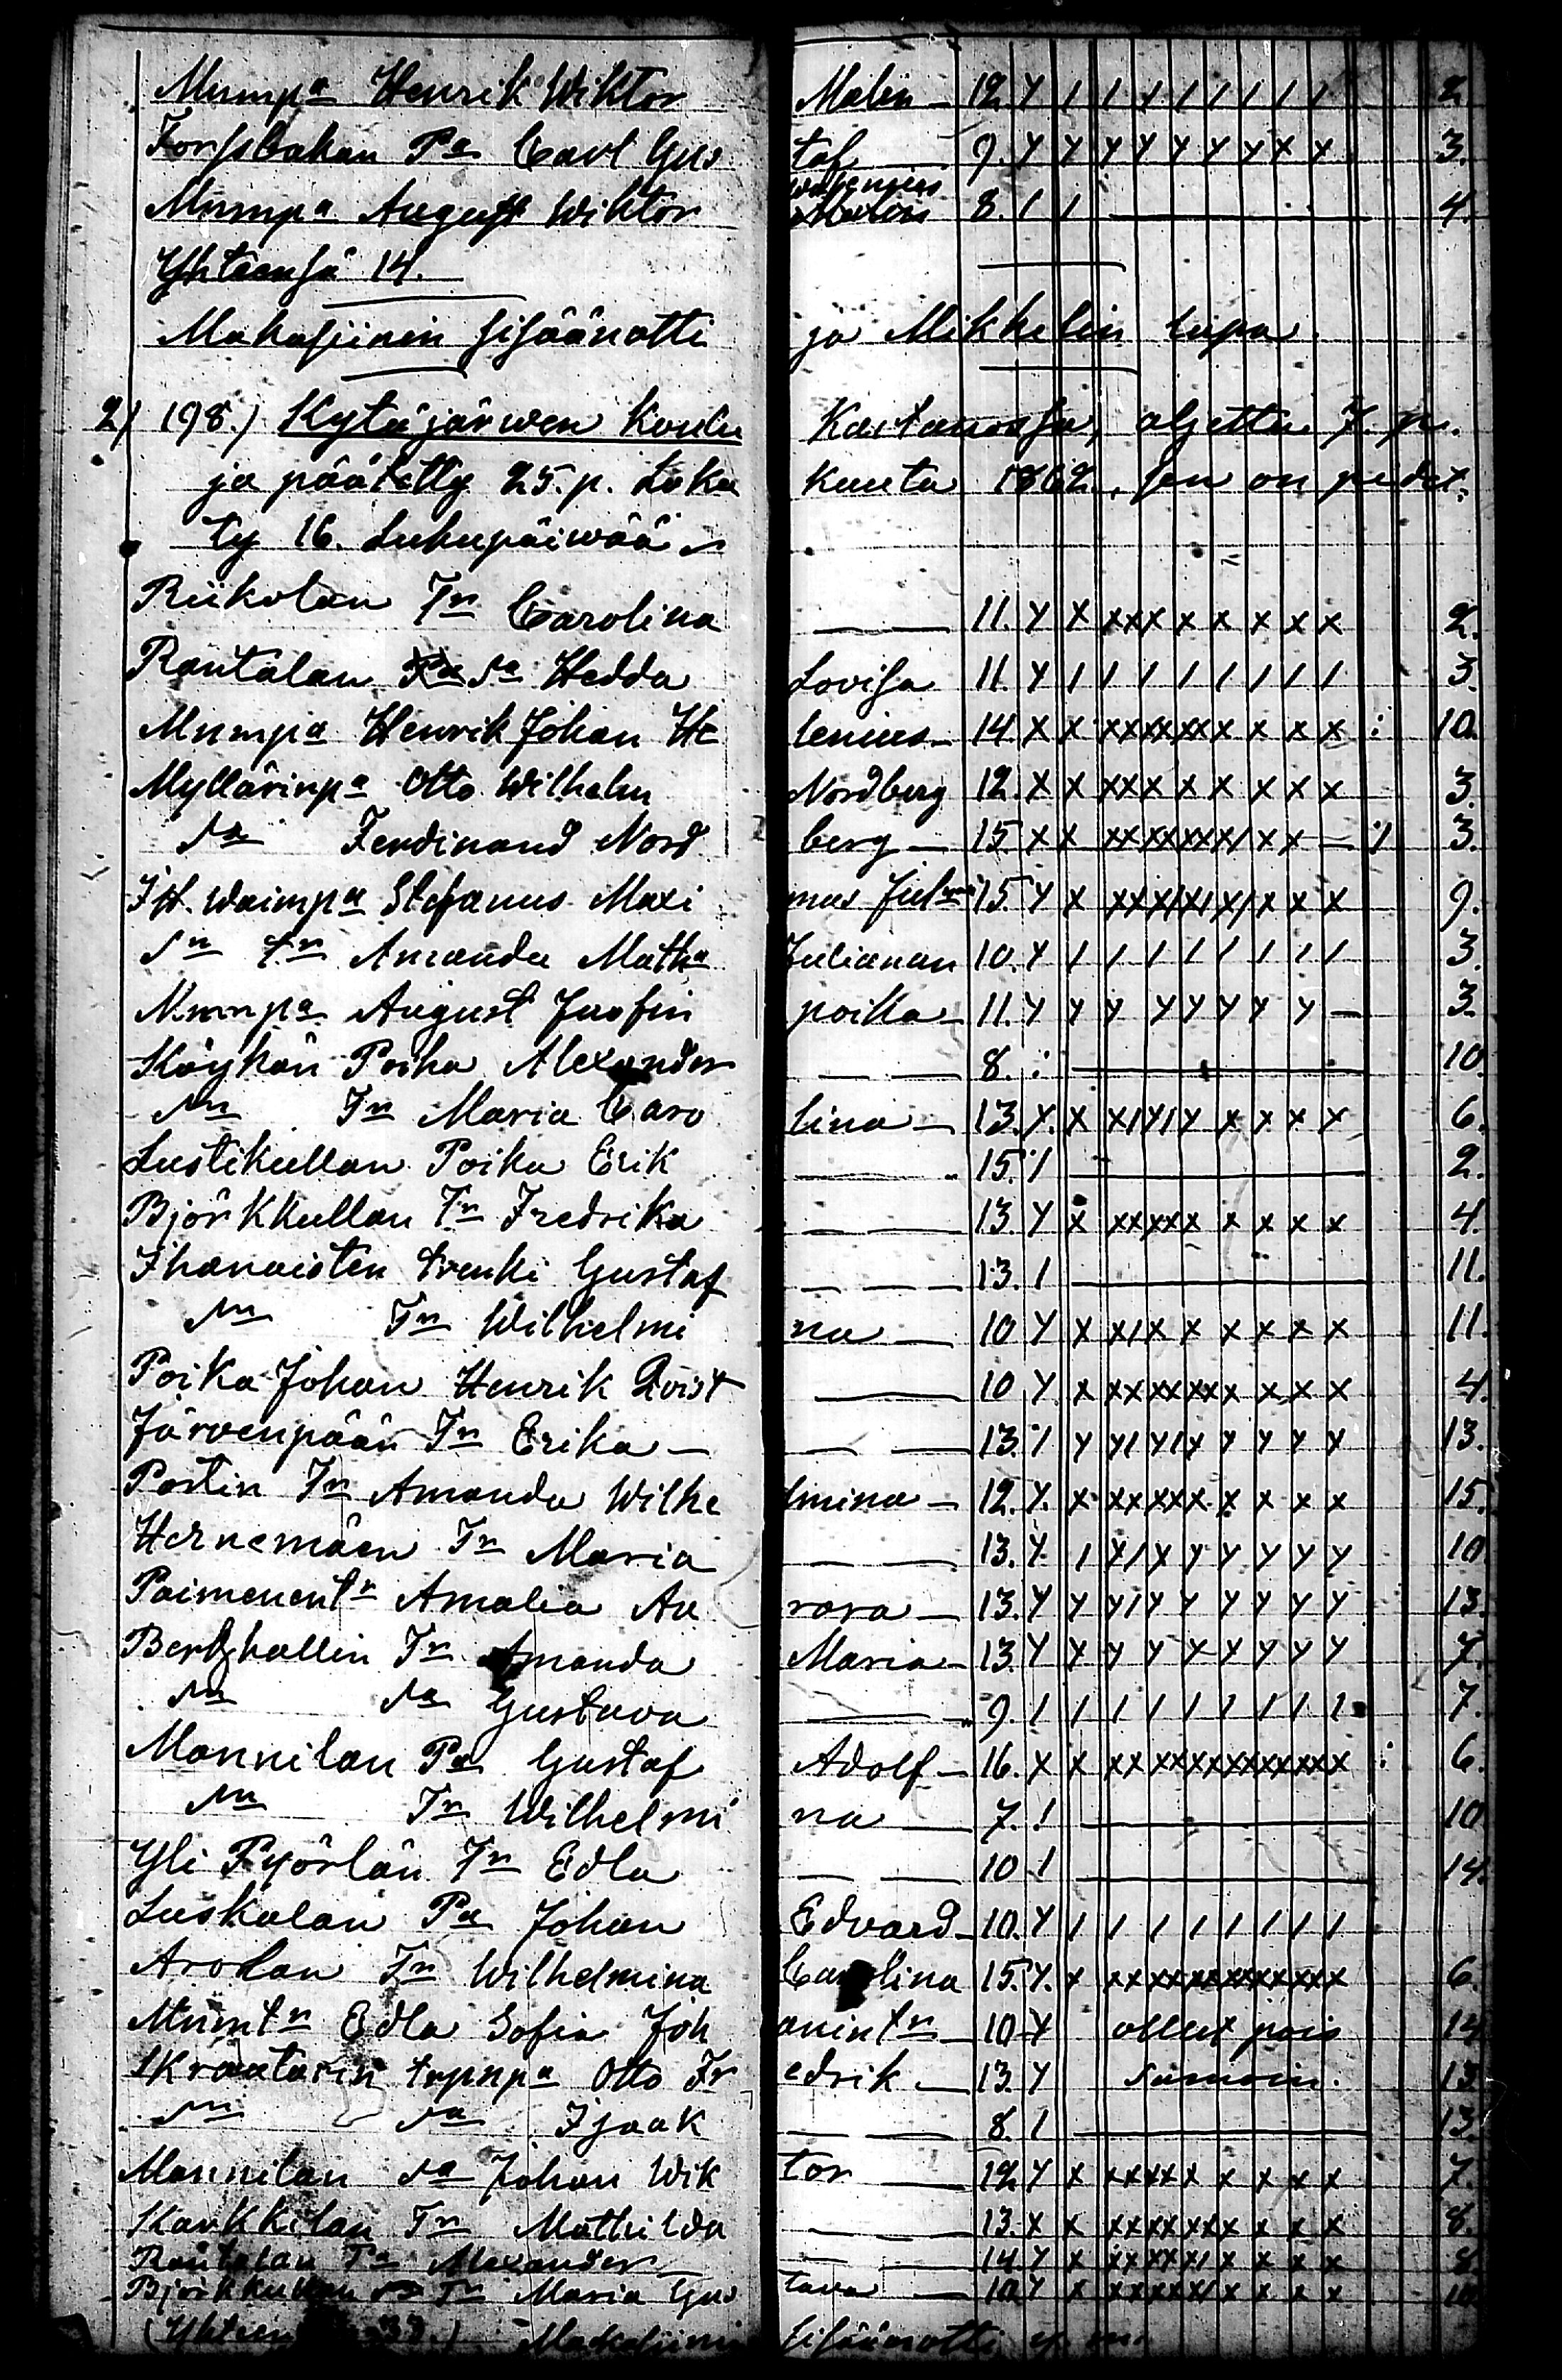 Mnmpa Henrik Wiktor Malin — 12. y / / / / / / / / 2
Forssbakan Pa Carl Gus taf — 9. y y y y y y y x y 3.
Mnmpa August Wiktor 8. / / — 4.
Yhteensä 14.
Makasiinin sisäänotti ja Mikkelin lupa
2) 198.) Kytäjärwen Koulu Kartanossa, aljettu 7. p.
ja päätetty 25. p. Loka kuuta 1862, sen on pidet.
ty 16. Lukupäiwää.
Riikolan Tr Carolina — 11. y x xxx x x x x x 2.
Rantalan sa Hedda Lovisa 11. y / / / / / / / / 3.
Mnmpa Henrik Johan He lenius — 14. x x xxxxxx x x x x : 10.
Myllärinpa Otto Wilhelm Nordberg 12. x x xxx x x x x x 3.
sn Ferdinand Nord berg — 15 x x xxxxxx/ x x — ·/ 3.
Itt. waimpa Stefanus Maxi mus 15. y x xxx/x/x/ x x x 9.
sn tr Amanda Math. Julianan 10. y / / / / / / / / 3.
Mnmpa August Josefin poika — 11. y y y y y y y y — 3.
Köyhän Poika Alexander — 8. : — 10.
sn Tr Maria Caro lina — 13. y. x x/y/y x x x x 6.
Lustikullan Poika Erik — 15 ·/ — 2.
Björkkullan Tr Fredrika — 13. y x xxxxx x x x x 4.
Ihanaisten trenki Gustaf — 13. / — 11.
sn Tr Wilhelmi na — 10 y x x/x x x x x x 11.
Poika Johan Henrik Qvist — 10 y x xxxxxxx x x x 4.
Järvenpään Tr Erika — 13. ·/ y y/y/y y y y y 13.
Postin Tr Amanda Wilhe lmina — 12. y. x xxxxx x x x x 15.
Hernemäen Tr Maria — 13. y. / y/x y y y y y 10
Paimenentr Amalia Au rora — 13. y y y/y y y y y y 13.
Berghällin Tr Amanda Maria — 13. y y y y y y y y y 7.
sn sa Gustava — 9. / / / / / / / / / 7.
Mannilan Pa Gustaf Adolf — 16. x x xx xxxxxxxxxxx : 6.
sn Tr Wilhelmi na — 7. / — 10
Yli Pyörlän Tr Edla — 10 / — 14.
Luskalan Pa Johan Edvard — 10. y / / / / / / / /
Arolan Tr Wilhelmina Carolina 15. y. x xxxxxxxxxxxx 6.
Mnmtr Edla Sofia Joh anintr — 10 y ollut pois 14
Skräätärin Otto Fr edrik — 13. y samoin. 13
sn sa Isaak — 8. / — 13.
Mannilan sa Johan Wik tor — 12 y x xxxxx x x x x 7.
Karkkilan Tr Mathilda — 13. x x xxxxxxx x x x 8.
Rantalan Pa Alexander — 14 y x xxxxx/ x x x x 8.
Björkkullan Tr Maria Gus tava — 10. y x xxxxx/ x x x x 10
(Yhteen 33.) Makasiinin sisäänotti